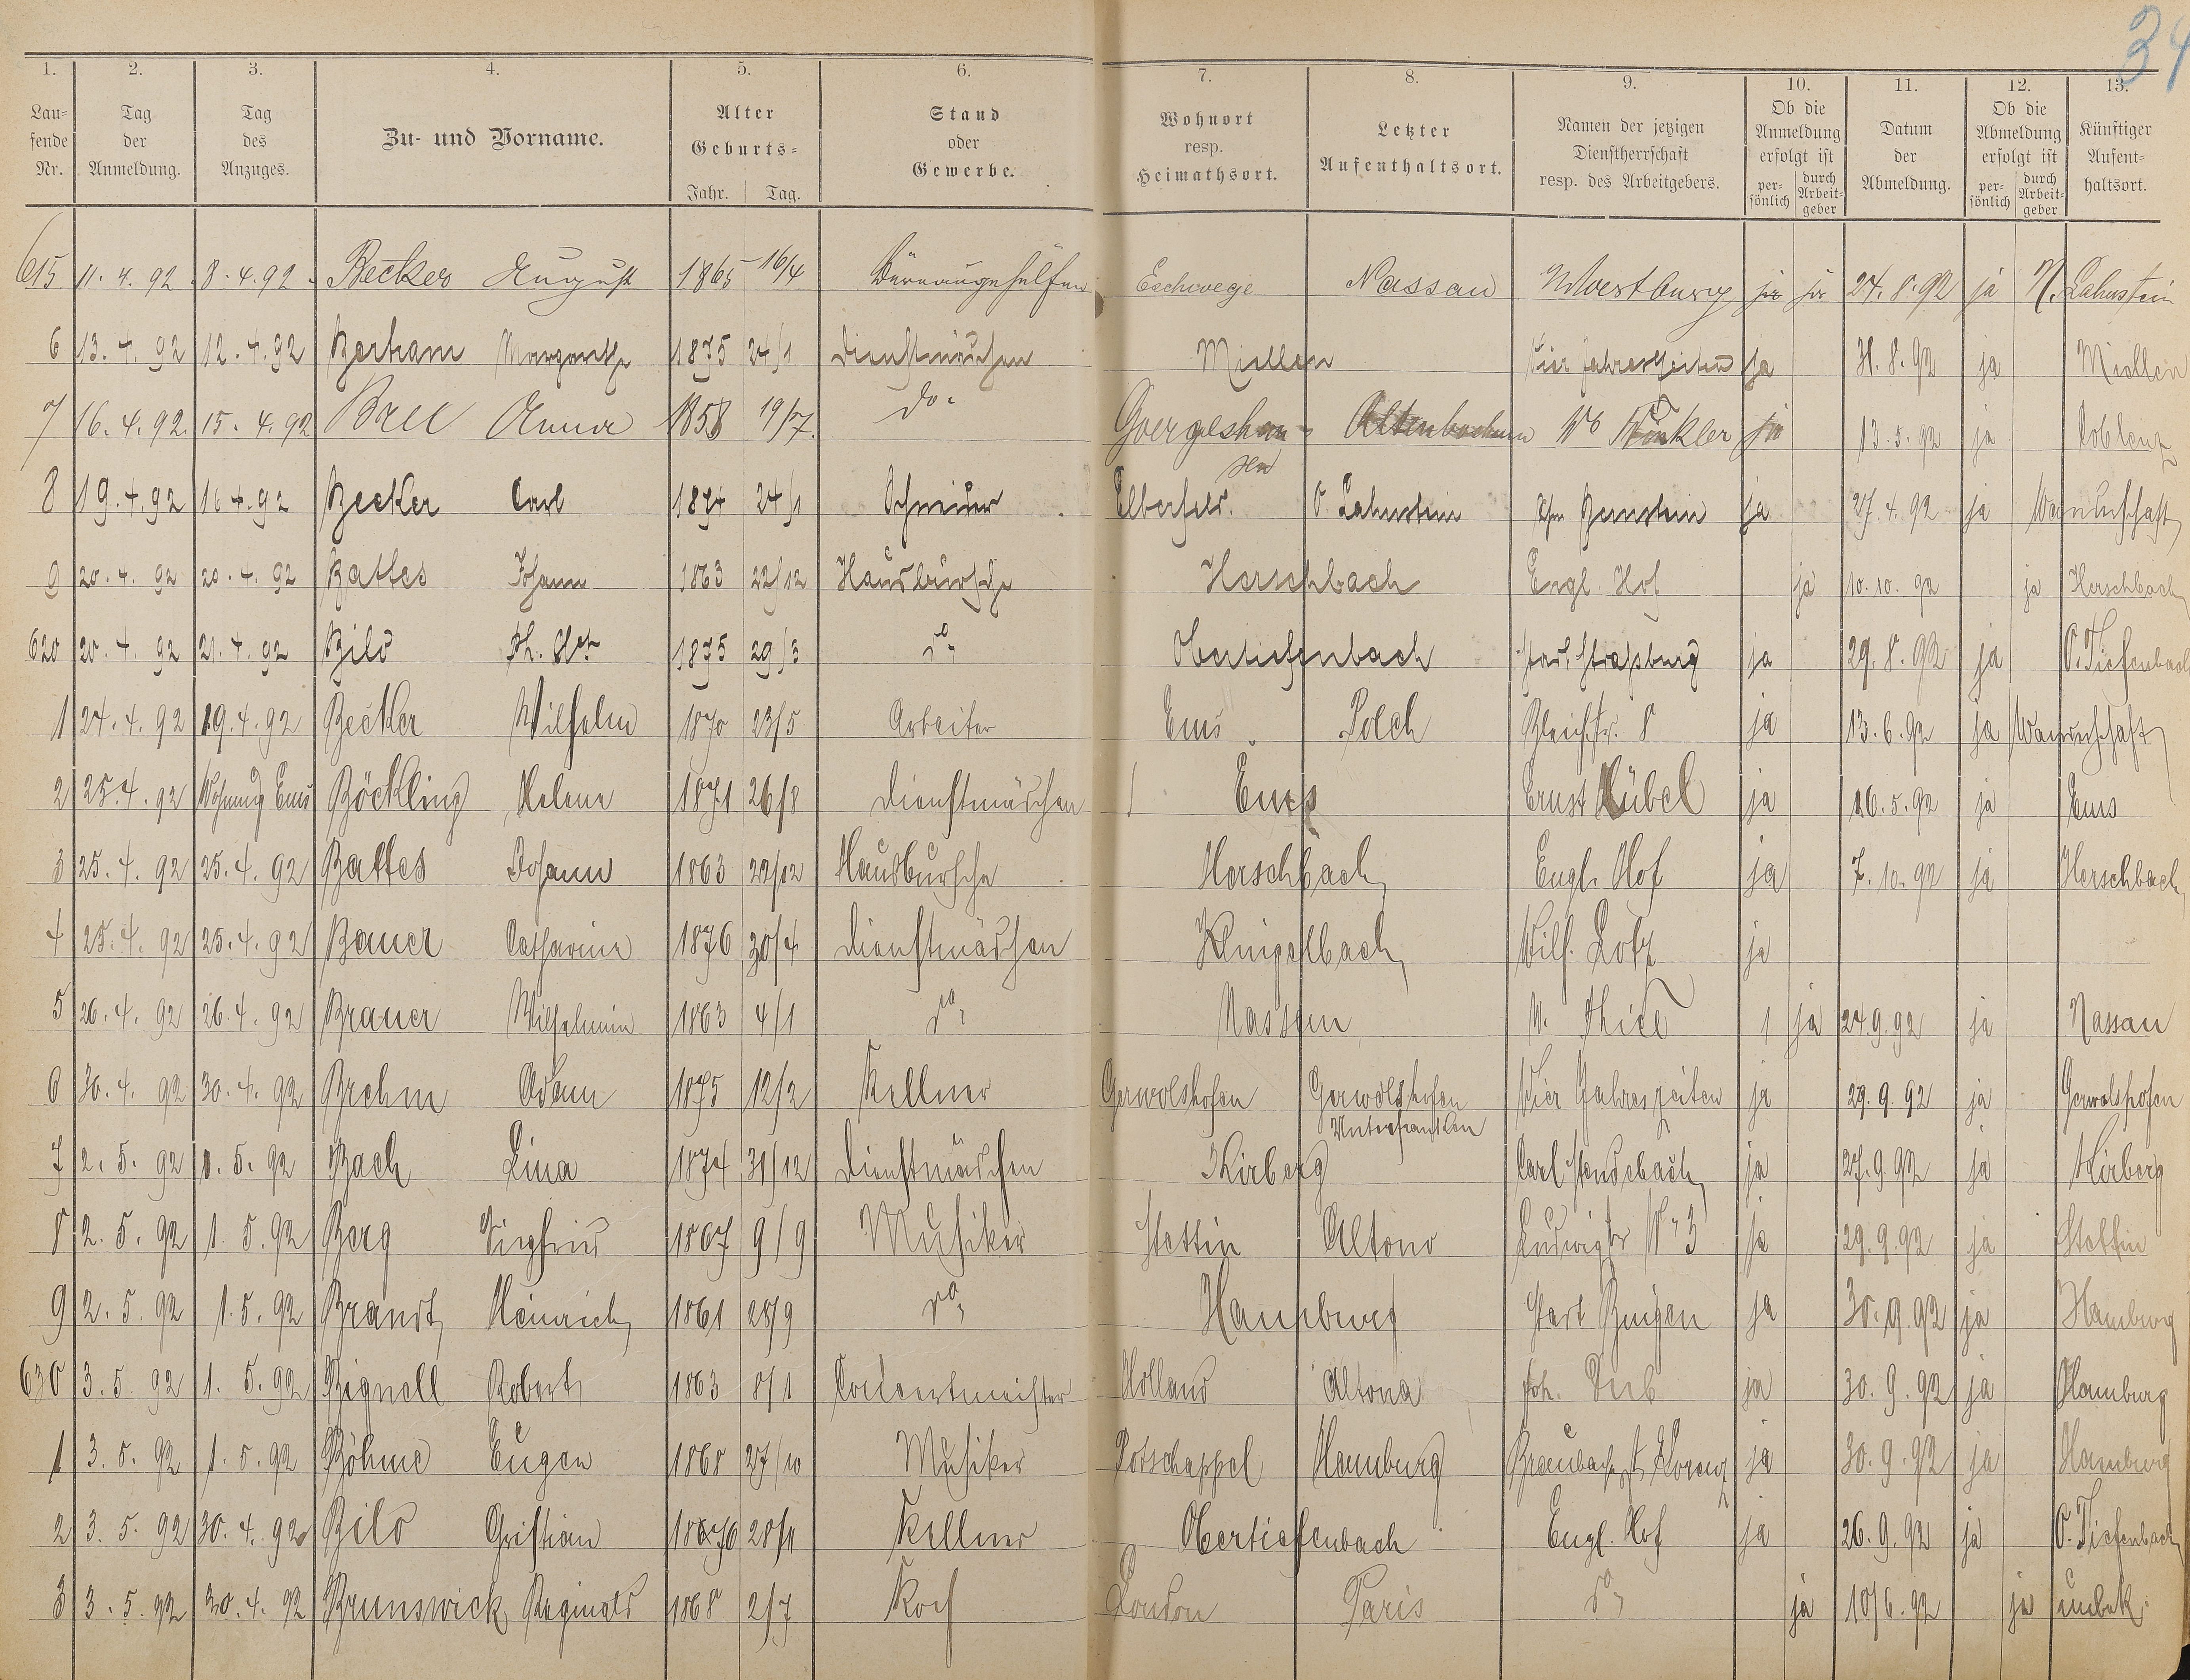 34
1. 2. 3. 4. 5. 6. 7. 8. 9. 10. 11. 12. 13.
Laufende Nr. Tag der Anmeldung. Tag des Anzuges. Zu- und Vorname. Alter Geburts= Jahr. Tag. Stand oder Gewerbe. Wohnort resp. Heimathsort. Letzter Aufenthaltsort. Namen der jetzigen Dienstherrschaft resp. des Arbeitgebers. Ob die Anmeldung erfolgt ist persönlich durch Arbeitgeber Datum der Abmeldung. Ob die Abmeldung erfolgt ist persönlich durch Arbeitgeber Künftiger Aufenthaltsort.
615 11.4.92 8.4.92 Becker August 1865 16/4 Eschwege Nassau ja ja 24.8.92 ja N. Lahnstein
6 13.4.92 12.4.92 Margarethe 1875 24/1 Dienstmädchen Miellen Vier Jahreszeiten ja 31.8.92 ja Miellen
7 16.4.92 15.4.92 Anna 1858 19/7 do. Winkler ja 13.5.92 ja Coblenz
8 19.4.92 16.4.92 Becker Carl 1874 24/1 Schneider Elberfeld O. Lahnstein ja 27.4.92 ja Wanderschaft
9 20.4.92 20.4.92 Battes Johann 1863 22/12 Hausbursche Herschbach Engl. Hof ja 10.10.92 ja Herschbach
620 20.4.92 21.4.92 Bild 1875 29/3 do Obertiefenbach Stadt Straßburg ja 29.8.92 ja O. Tiefenbach
1 24.4.92 19.4.92 Becker Wilhelm 1870 23/5 Arbeiter Ems Polch Bleichstr. 8 ja 13.6.92 ja Wanderschaft
2 25.4.92 Wohnung Ems Böckling Helene 1871 26/8 Dienstmädchen Ems Ernst Kübel ja 16.5.92 ja Ems
3 25.4.92 25.4.92 Battes Johann 1863 22/12 Hausbursche Herschbach Engl. Hof ja 7.10.92 ja Herschbach
4 25.4.92 25.4.92 Bauer Catharina 1876 30/4 Dienstmädchen Klingelbach Wilh. Lotz ja
5 26.4.92 26.4.92 Brauer Wilhelmin 1863 4/1 do Nassau ja 24.9.92 ja Nassau
6 30.4.92 30.4.92 Brehm Adam 1875 12/2 Kellner Gerwolshofen Gerwolshofen Unterfranken Vier Jahreszeiten ja 29.9.92 ja Gerwolshofen
7 2.5.92 1.5.92 Bach Lina 1874 31/12 Dienstmädchen Kirberg Carl ja 27.9.92 ja Kirberg
8 2.5.92 1.5.92 Berg Siegfried 1867 9/9 Musiker Stettin Altona Ludwigstr No 3 ja 29.9.92 ja Stettin
9 2.5.92 1.5.92 Brandt Heinrich 1861 28/9 do Hamburg Stadt Bingen ja 30.9.92 ja Hamburg
630 3.5.92 1.5.92 Bignell Robert 1863 8/1 Concertmeister Holland Altona Joh. ja 30.9.92 ja Hamburg
1 3.5.92 1.5.92 Böhme Eugen 1868 27/10 Musiker Potschappel Hamburg ja 30.9.92 ja Hamburg
2 3.5.92 30.4.92 Bild Christian 1876 28/11 Kellner Obertiefenbach Engl. Hof ja 26.9.92 ja O. Tiefenbach
3 3.5.92 30.4.92 Brunswick Reginald 1868 2/7 Koch London Paris do ja 10/6.92 ja unbek.